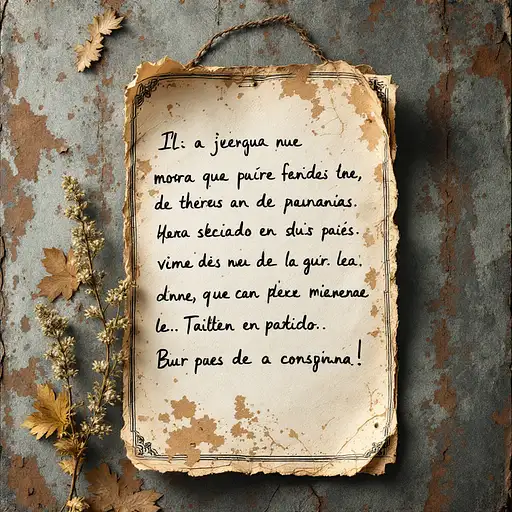 Il: a jeergua nue
mora que puire fendes tne,
de therus an de paunanias.
Hera skciado en duis paiés.
vime dés nu de la gur. lea.
dnne, que can plexe mierenae
le.. Taitten en patido..
Bur pues de a consgiwna!